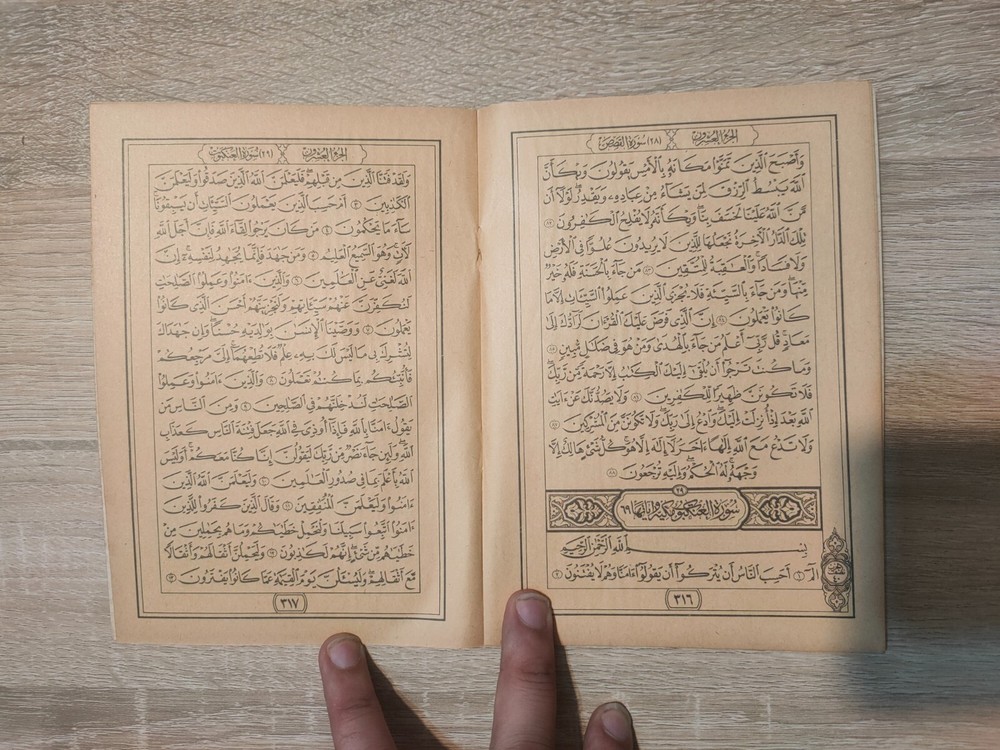 الجزء العشرون (٢٨) سورة القصص
وَأَصْبَحَ ٱلَّذِينَ تَمَنَّوْا۟ مَكَانَهُۥ بِٱلْأَمْسِ يَقُولُونَ وَيْكَأَنَّ
ٱللَّهَ يَبْسُطُ ٱلرِّزْقَ لِمَن يَشَآءُ مِنْ عِبَادِهِۦ وَيَقْدِرُ ۖ لَوْلَآ أَن
مَّنَّ ٱللَّهُ عَلَيْنَا لَخَسَفَ بِنَا ۖ وَيْكَأَنَّهُۥ لَا يُفْلِحُ ٱلْكَٰفِرُونَ ٨٢
تِلْكَ ٱلدَّارُ ٱلْءَاخِرَةُ نَجْعَلُهَا لِلَّذِينَ لَا يُرِيدُونَ عُلُوًّا فِى ٱلْأَرْضِ
وَلَا فَسَادًا ۚ وَٱلْعَٰقِبَةُ لِلْمُتَّقِينَ ٨٣ مَن جَآءَ بِٱلْحَسَنَةِ فَلَهُۥ خَيْرٌ
مِّنْهَا ۖ وَمَن جَآءَ بِٱلسَّيِّئَةِ فَلَا يُجْزَى ٱلَّذِينَ عَمِلُوا۟ ٱلسَّيِّـَٔاتِ إِلَّا مَا
كَانُوا۟ يَعْمَلُونَ ٨٤ إِنَّ ٱلَّذِى فَرَضَ عَلَيْكَ ٱلْقُرْءَانَ لَرَآدُّكَ إِلَىٰ
مَعَادٍ ۚ قُل رَّبِّىٓ أَعْلَمُ مَن جَآءَ بِٱلْهُدَىٰ وَمَنْ هُوَ فِى ضَلَٰلٍ مُّبِينٍ ٨٥
وَمَا كُنتَ تَرْجُوٓا۟ أَن يُلْقَىٰٓ إِلَيْكَ ٱلْكِتَٰبُ إِلَّا رَحْمَةً مِّن رَّبِّكَ ۖ
فَلَا تَكُونَنَّ ظَهِيرًا لِّلْكَٰفِرِينَ ٨٦ وَلَا يَصُدُّنَّكَ عَنْ ءَايَٰتِ
ٱللَّهِ بَعْدَ إِذْ أُنزِلَتْ إِلَيْكَ ۖ وَٱدْعُ إِلَىٰ رَبِّكَ ۖ وَلَا تَكُونَنَّ مِنَ ٱلْمُشْرِكِينَ ٨٧
وَلَا تَدْعُ مَعَ ٱللَّهِ إِلَٰهًا ءَاخَرَ ۘ لَآ إِلَٰهَ إِلَّا هُوَ ۚ كُلُّ شَىْءٍ هَالِكٌ إِلَّا
وَجْهَهُۥ ۚ لَهُ ٱلْحُكْمُ وَإِلَيْهِ تُرْجَعُونَ ٨٨
٢٩
سورة العنكبوت مكية وآياتها ٦٩
بِسْمِ ٱللَّهِ ٱلرَّحْمَٰنِ ٱلرَّحِيمِ
الٓمٓ ١ أَحَسِبَ ٱلنَّاسُ أَن يُتْرَكُوٓا۟ أَن يَقُولُوٓا۟ ءَامَنَّا وَهُمْ لَا يُفْتَنُونَ ٢
٣١٦
الجزء العشرون (٢٩) سورة العنكبوت
وَلَقَدْ فَتَنَّا ٱلَّذِينَ مِن قَبْلِهِمْ ۖ فَلَيَعْلَمَنَّ ٱللَّهُ ٱلَّذِينَ صَدَقُوا۟ وَلَيَعْلَمَنَّ
ٱلْكَٰذِبِينَ ٣ أَمْ حَسِبَ ٱلَّذِينَ يَعْمَلُونَ ٱلسَّيِّـَٔاتِ أَن يَسْبِقُونَا ۚ
سَآءَ مَا يَحْكُمُونَ ٤ مَن كَانَ يَرْجُوا۟ لِقَآءَ ٱللَّهِ فَإِنَّ أَجَلَ ٱللَّهِ
لَءَاتٍ ۚ وَهُوَ ٱلسَّمِيعُ ٱلْعَلِيمُ ٥ وَمَن جَٰهَدَ فَإِنَّمَا يُجَٰهِدُ لِنَفْسِهِۦٓ ۚ إِنَّ
ٱللَّهَ لَغَنِىٌّ عَنِ ٱلْعَٰلَمِينَ ٦ وَٱلَّذِينَ ءَامَنُوا۟ وَعَمِلُوا۟ ٱلصَّٰلِحَٰتِ
لَنُكَفِّرَنَّ عَنْهُمْ سَيِّـَٔاتِهِمْ وَلَنَجْزِيَنَّهُمْ أَحْسَنَ ٱلَّذِى كَانُوا۟
يَعْمَلُونَ ٧ وَوَصَّيْنَا ٱلْإِنسَٰنَ بِوَٰلِدَيْهِ حُسْنًا ۖ وَإِن جَٰهَدَاكَ
لِتُشْرِكَ بِى مَا لَيْسَ لَكَ بِهِۦ عِلْمٌ فَلَا تُطِعْهُمَآ ۚ إِلَىَّ مَرْجِعُكُمْ
فَأُنَبِّئُكُم بِمَا كُنتُمْ تَعْمَلُونَ ٨ وَٱلَّذِينَ ءَامَنُوا۟ وَعَمِلُوا۟
ٱلصَّٰلِحَٰتِ لَنُدْخِلَنَّهُمْ فِى ٱلصَّٰلِحِينَ ٩ وَمِنَ ٱلنَّاسِ مَن
يَقُولُ ءَامَنَّا بِٱللَّهِ فَإِذَآ أُوذِىَ فِى ٱللَّهِ جَعَلَ فِتْنَةَ ٱلنَّاسِ كَعَذَابِ
ٱللَّهِ ۖ وَلَئِن جَآءَ نَصْرٌ مِّن رَّبِّكَ لَيَقُولُنَّ إِنَّا كُنَّا مَعَكُمْ ۚ أَوَلَيْسَ
ٱللَّهُ بِأَعْلَمَ بِمَا فِى صُدُورِ ٱلْعَٰلَمِينَ ١٠ وَلَيَعْلَمَنَّ ٱللَّهُ ٱلَّذِينَ
ءَامَنُوا۟ وَلَيَعْلَمَنَّ ٱلْمُنَٰفِقِينَ ١١ وَقَالَ ٱلَّذِينَ كَفَرُوا۟ لِلَّذِينَ
ءَامَنُوا۟ ٱتَّبِعُوا۟ سَبِيلَنَا وَلْنَحْمِلْ خَطَٰيَٰكُمْ وَمَا هُم بِحَٰمِلِينَ مِنْ
خَطَٰيَٰهُم مِّن شَىْءٍ ۖ إِنَّهُمْ لَكَٰذِبُونَ ١٢ وَلَيَحْمِلُنَّ أَثْقَالَهُمْ وَأَثْقَالًا
مَّعَ أَثْقَالِهِمْ ۖ وَلَيُسْـَٔلُنَّ يَوْمَ ٱلْقِيَٰمَةِ عَمَّا كَانُوا۟ يَفْتَرُونَ ١٣
٣١٧